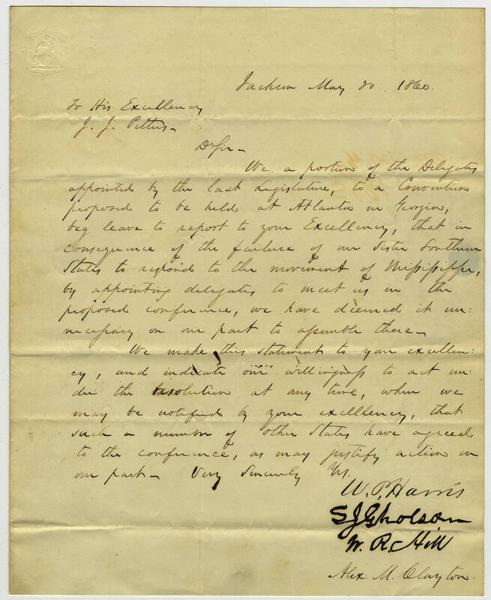 Jackson May 30. 1860.
To His Excellency
J. J. Pettus-
Dr Sir-
We a portion of the Delegates
appointed by the last Legislature, to a Convention
proposed to be held at Atlanta in Georgia,
beg leave to report to your Excellency, that in
consequence of the failure of our Sister Southern
States to respond to the movement of Mississippi,
by appointing delegates to meet us in the
proposed conference, we have deemed it un:
necessary on our part to assemble there-
We make this statement to your excellen:
cy, and indicate our willingness to act un
der the resolution at any time, when we
may be notified by your excellency, that
such a number of other States have agreed
to the conference, as may justify action on
our part- Very Sincerely
W. P. Harris
S J Gholson
W. R. Hill
Alex M. Clayton